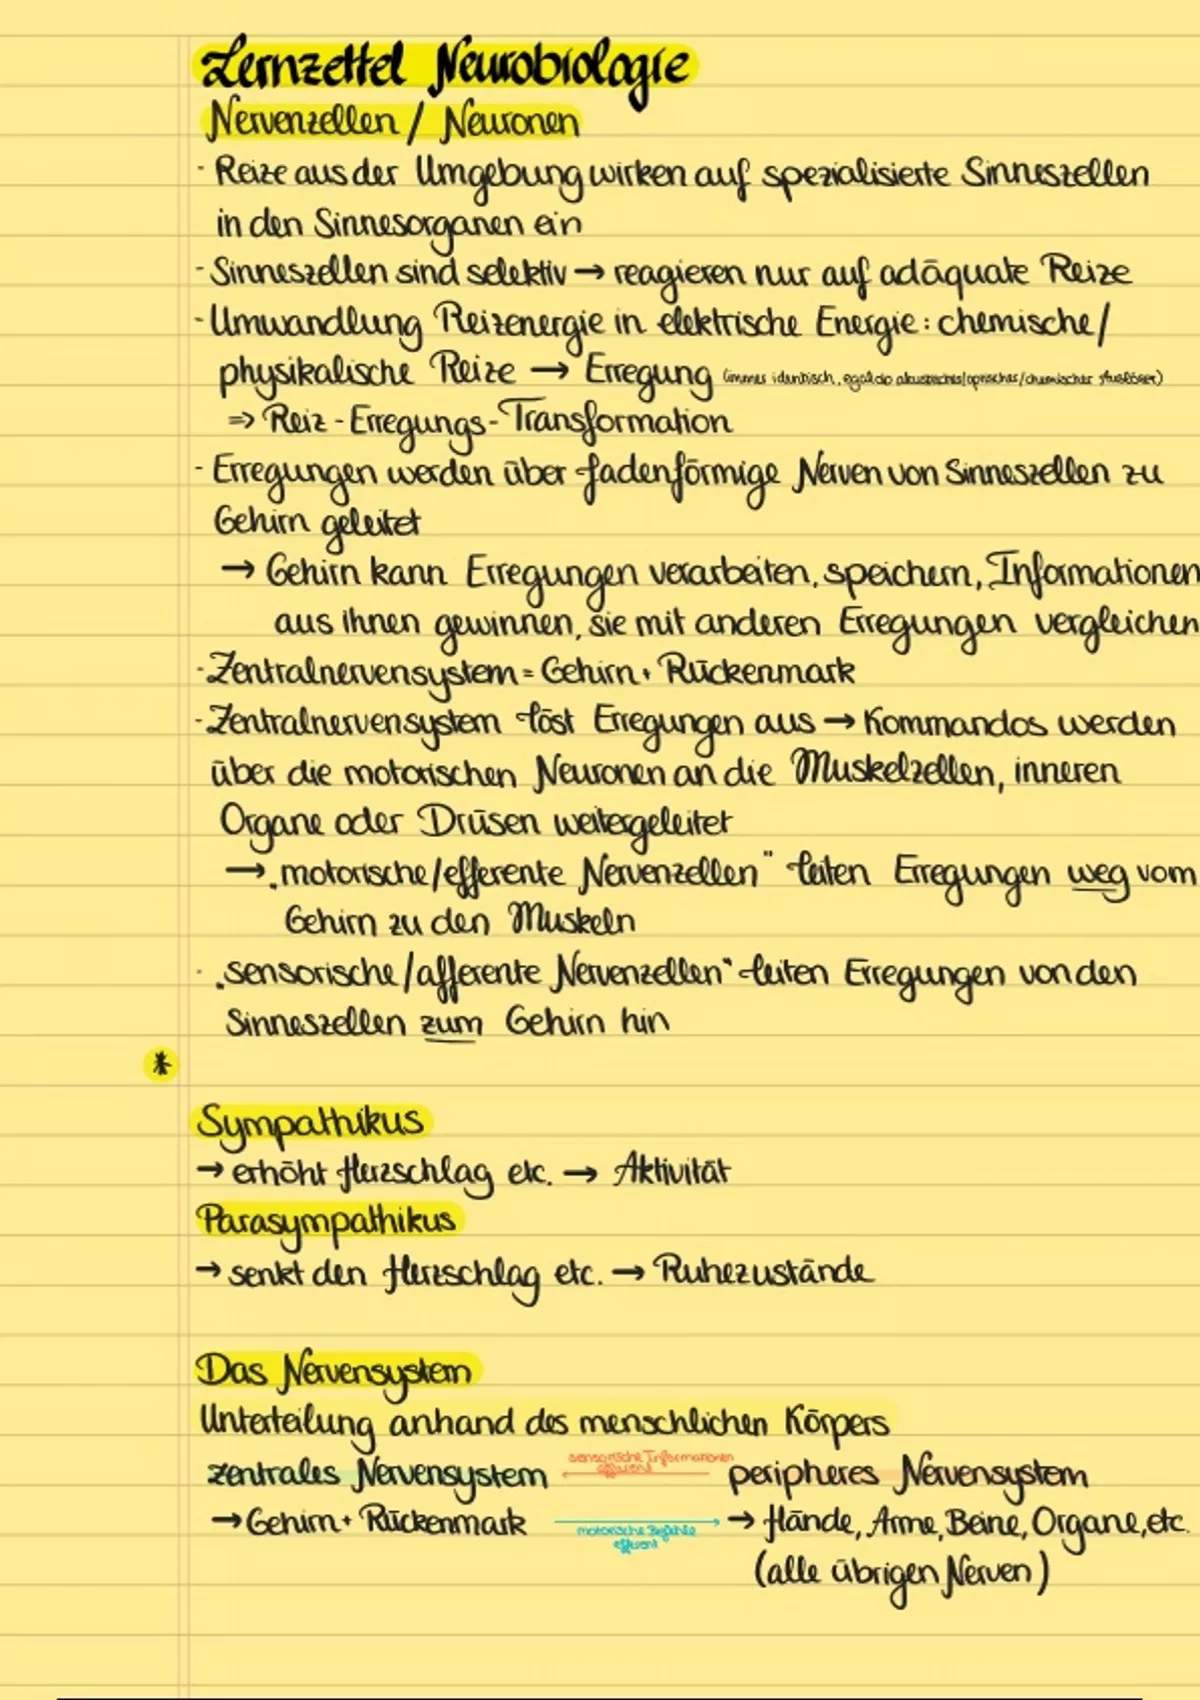 Lernzettel Neurobiologie
Nervenzellen / Neuronen
- Reize aus der Umgebung wirken auf spezialisierte Sinneszellen
in den Sinnesorganen ein
- Sinneszellen sind selektiv → reagieren nur auf adäquate Reize
- Umwandlung Reizenergie in elektrische Energie: chemische/
physikalische Reize → Erregung (immer identisch, egal ob akustischer/optischer/chemischer Auslöser)
⇒ Reiz-Erregungs-Transformation
- Erregungen werden über fadenförmige Nerven von Sinneszellen zu
Gehirn geleitet
→ Gehirn kann Erregungen verarbeiten, speichern, Informationen
aus ihnen gewinnen, sie mit anderen Erregungen vergleichen
- Zentralnervensystem = Gehirn + Rückenmark
- Zentralnervensystem löst Erregungen aus → Kommandos werden
über die motorischen Neuronen an die Muskelzellen, inneren
Organe oder Drüsen weitergeleitet
→ „motorische/efferente Nervenzellen" leiten Erregungen weg vom
Gehirn zu den Muskeln
- „sensorische/afferente Nervenzellen" leiten Erregungen von den
Sinneszellen zum Gehirn hin
*
Sympathikus
→ erhöht Herzschlag etc. → Aktivität
Parasympathikus
→ senkt den Herzschlag etc. → Ruhezustände
Das Nervensystem
Unterteilung anhand des menschlichen Körpers
zentrales Nervensystem sensorische Informationen peripheres Nervensystem
afferent
→ Gehirn + Rückenmark → Hände, Arme, Beine, Organe, etc.
motorische Befehle
efferent
(alle übrigen Nerven)